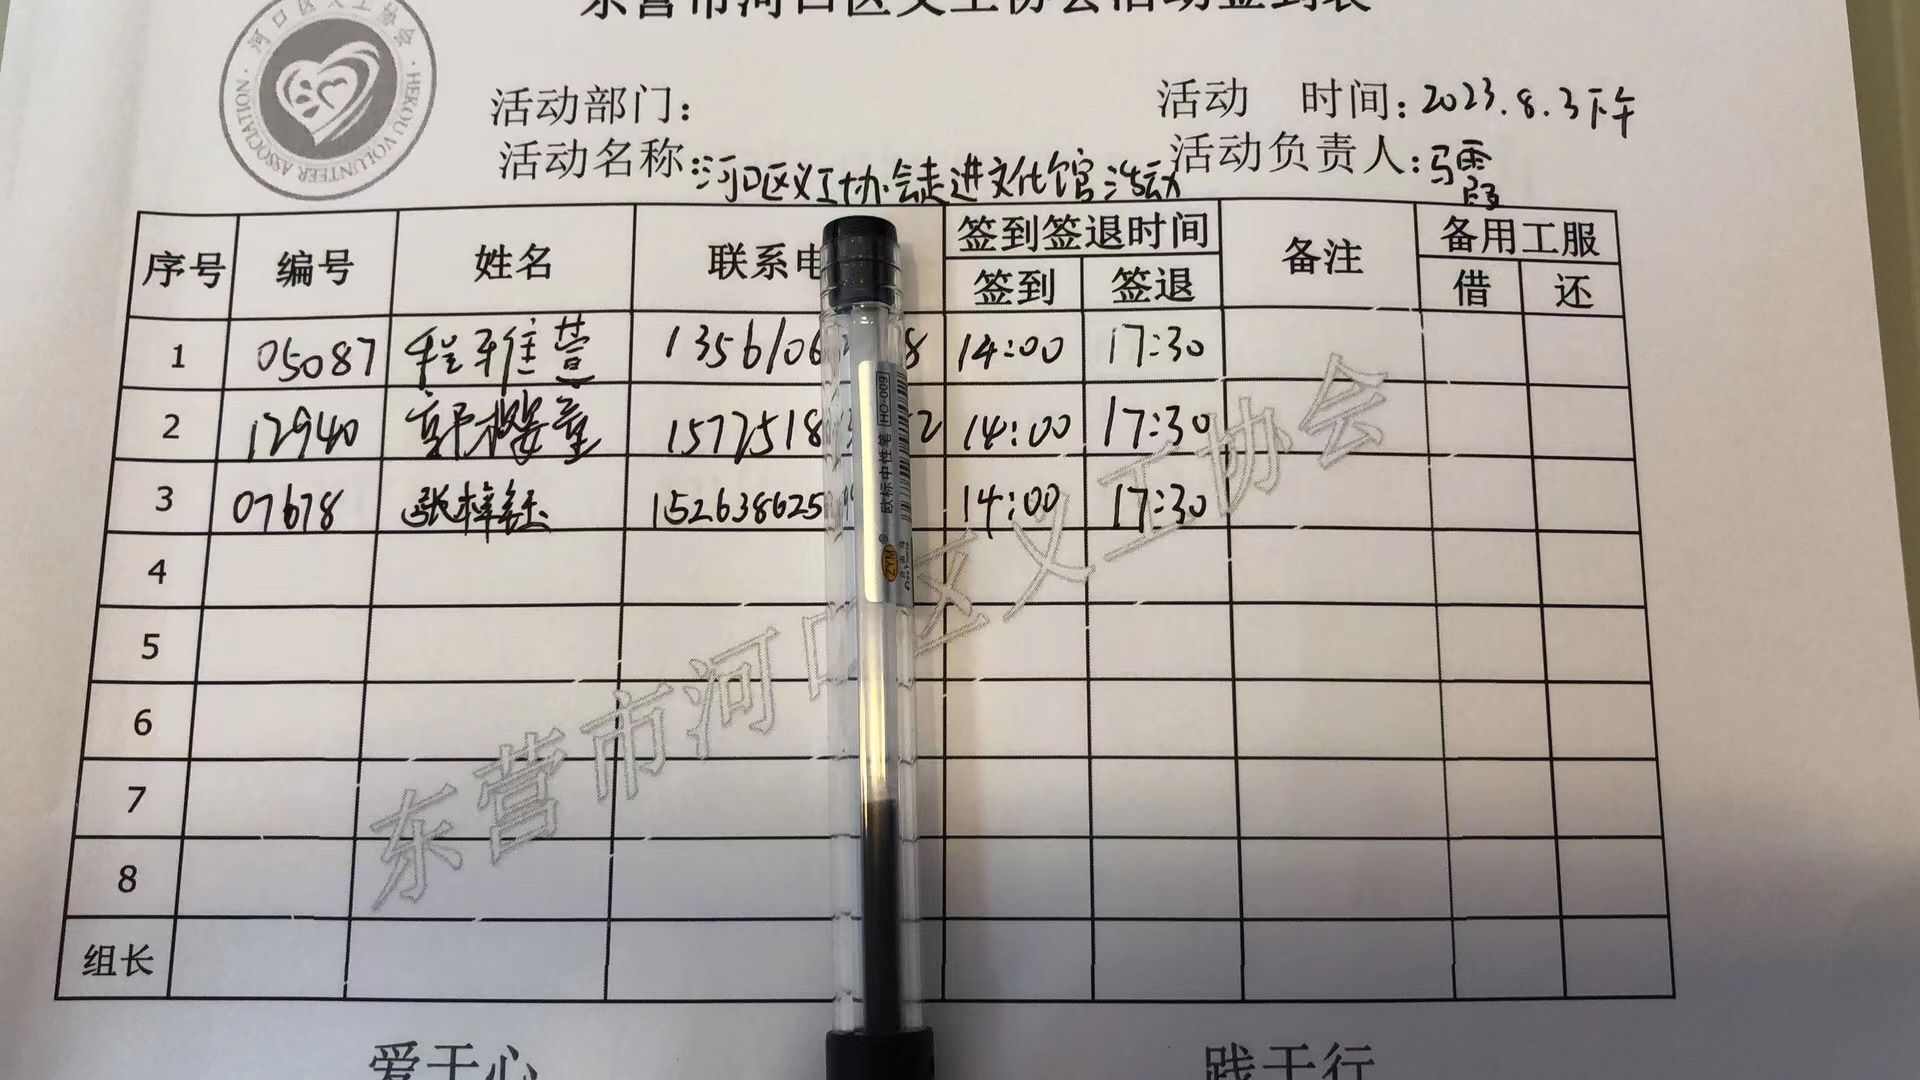 东营市河口区义工协会活动签到表
河口区义工协会
HEKOU VOLUNTEER ASSOCIATION
活动部门： 活动 时间：2023.8.3下午
活动名称：河口区义工协会走进文化馆活动 活动负责人：马霞
序号 编号 姓名 联系电 签到签退时间 备注 备用工服
签到 签退 借 还
1 05087 程雅萱 1356106 8 14:00 17:30
2 12940 郭樱童 1577518 2 14:00 17:30
3 07678 张梓钰 152638625 14:00 17:30
4
5
6
7
8
组长
东营市河口区义工协会
HO-009
欧标中性笔
ZYM
爱于心 践于行